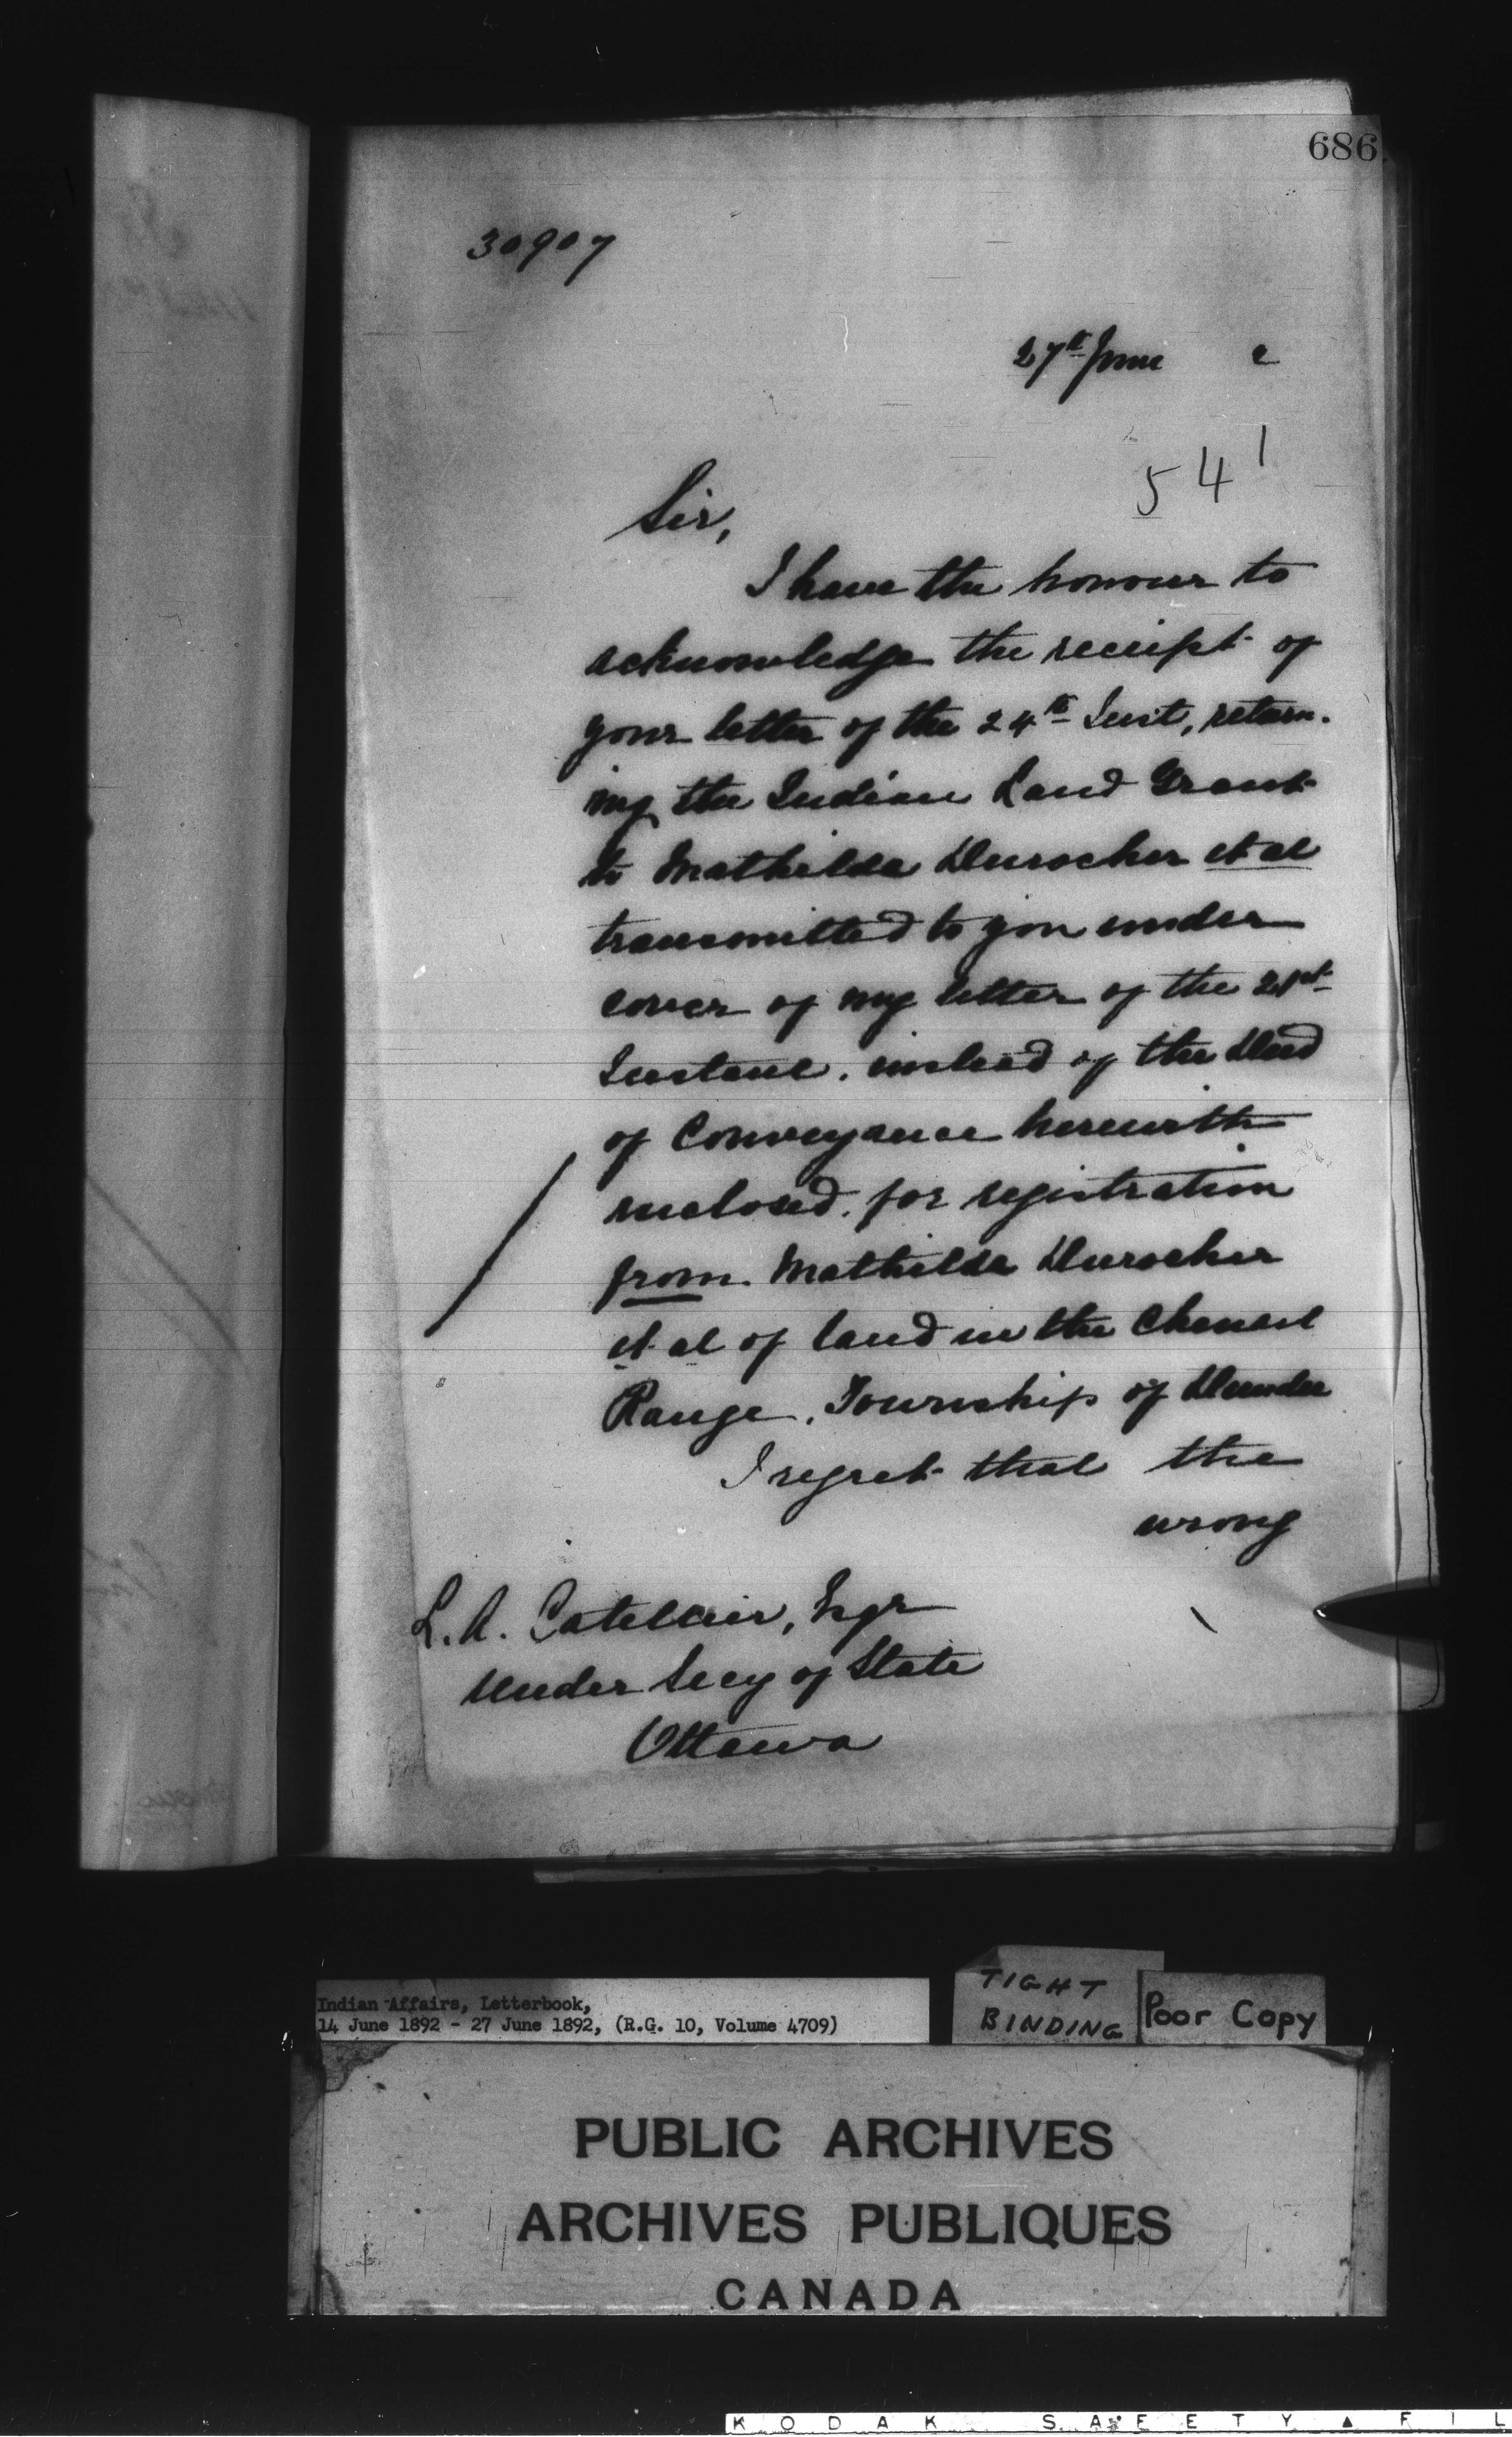 686
30907
27th June 2
541
Sir,
I have the honour to
acknowledge the receipt of
your letter of the 24th Inst, return-
ing the Indian Land Grant
to Mathilda Durocher et al
transmitted to you under
cover of my letter of the 21st
Instant. instead of the Deed
of Conveyance herewith
enclosed. for registration
from Mathilda Durocher
et al of land in the Chenail
Range, Township of Dundee
I regret that the
wrong
L. A. Catellier, Esqr
Under Secy of State
Ottawa
Indian Affairs, Letterbook,
14 June 1892 - 27 June 1892, (R.G. 10, Volume 4709)
TIGHT
BINDING
Poor Copy
PUBLIC ARCHIVES
ARCHIVES PUBLIQUES
CANADA
KODAK SAFETY ▲ FIL